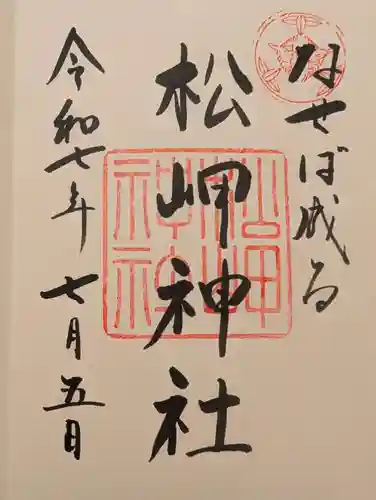 なせば成る
松岬神社
令和七年七月五日
松岬神社